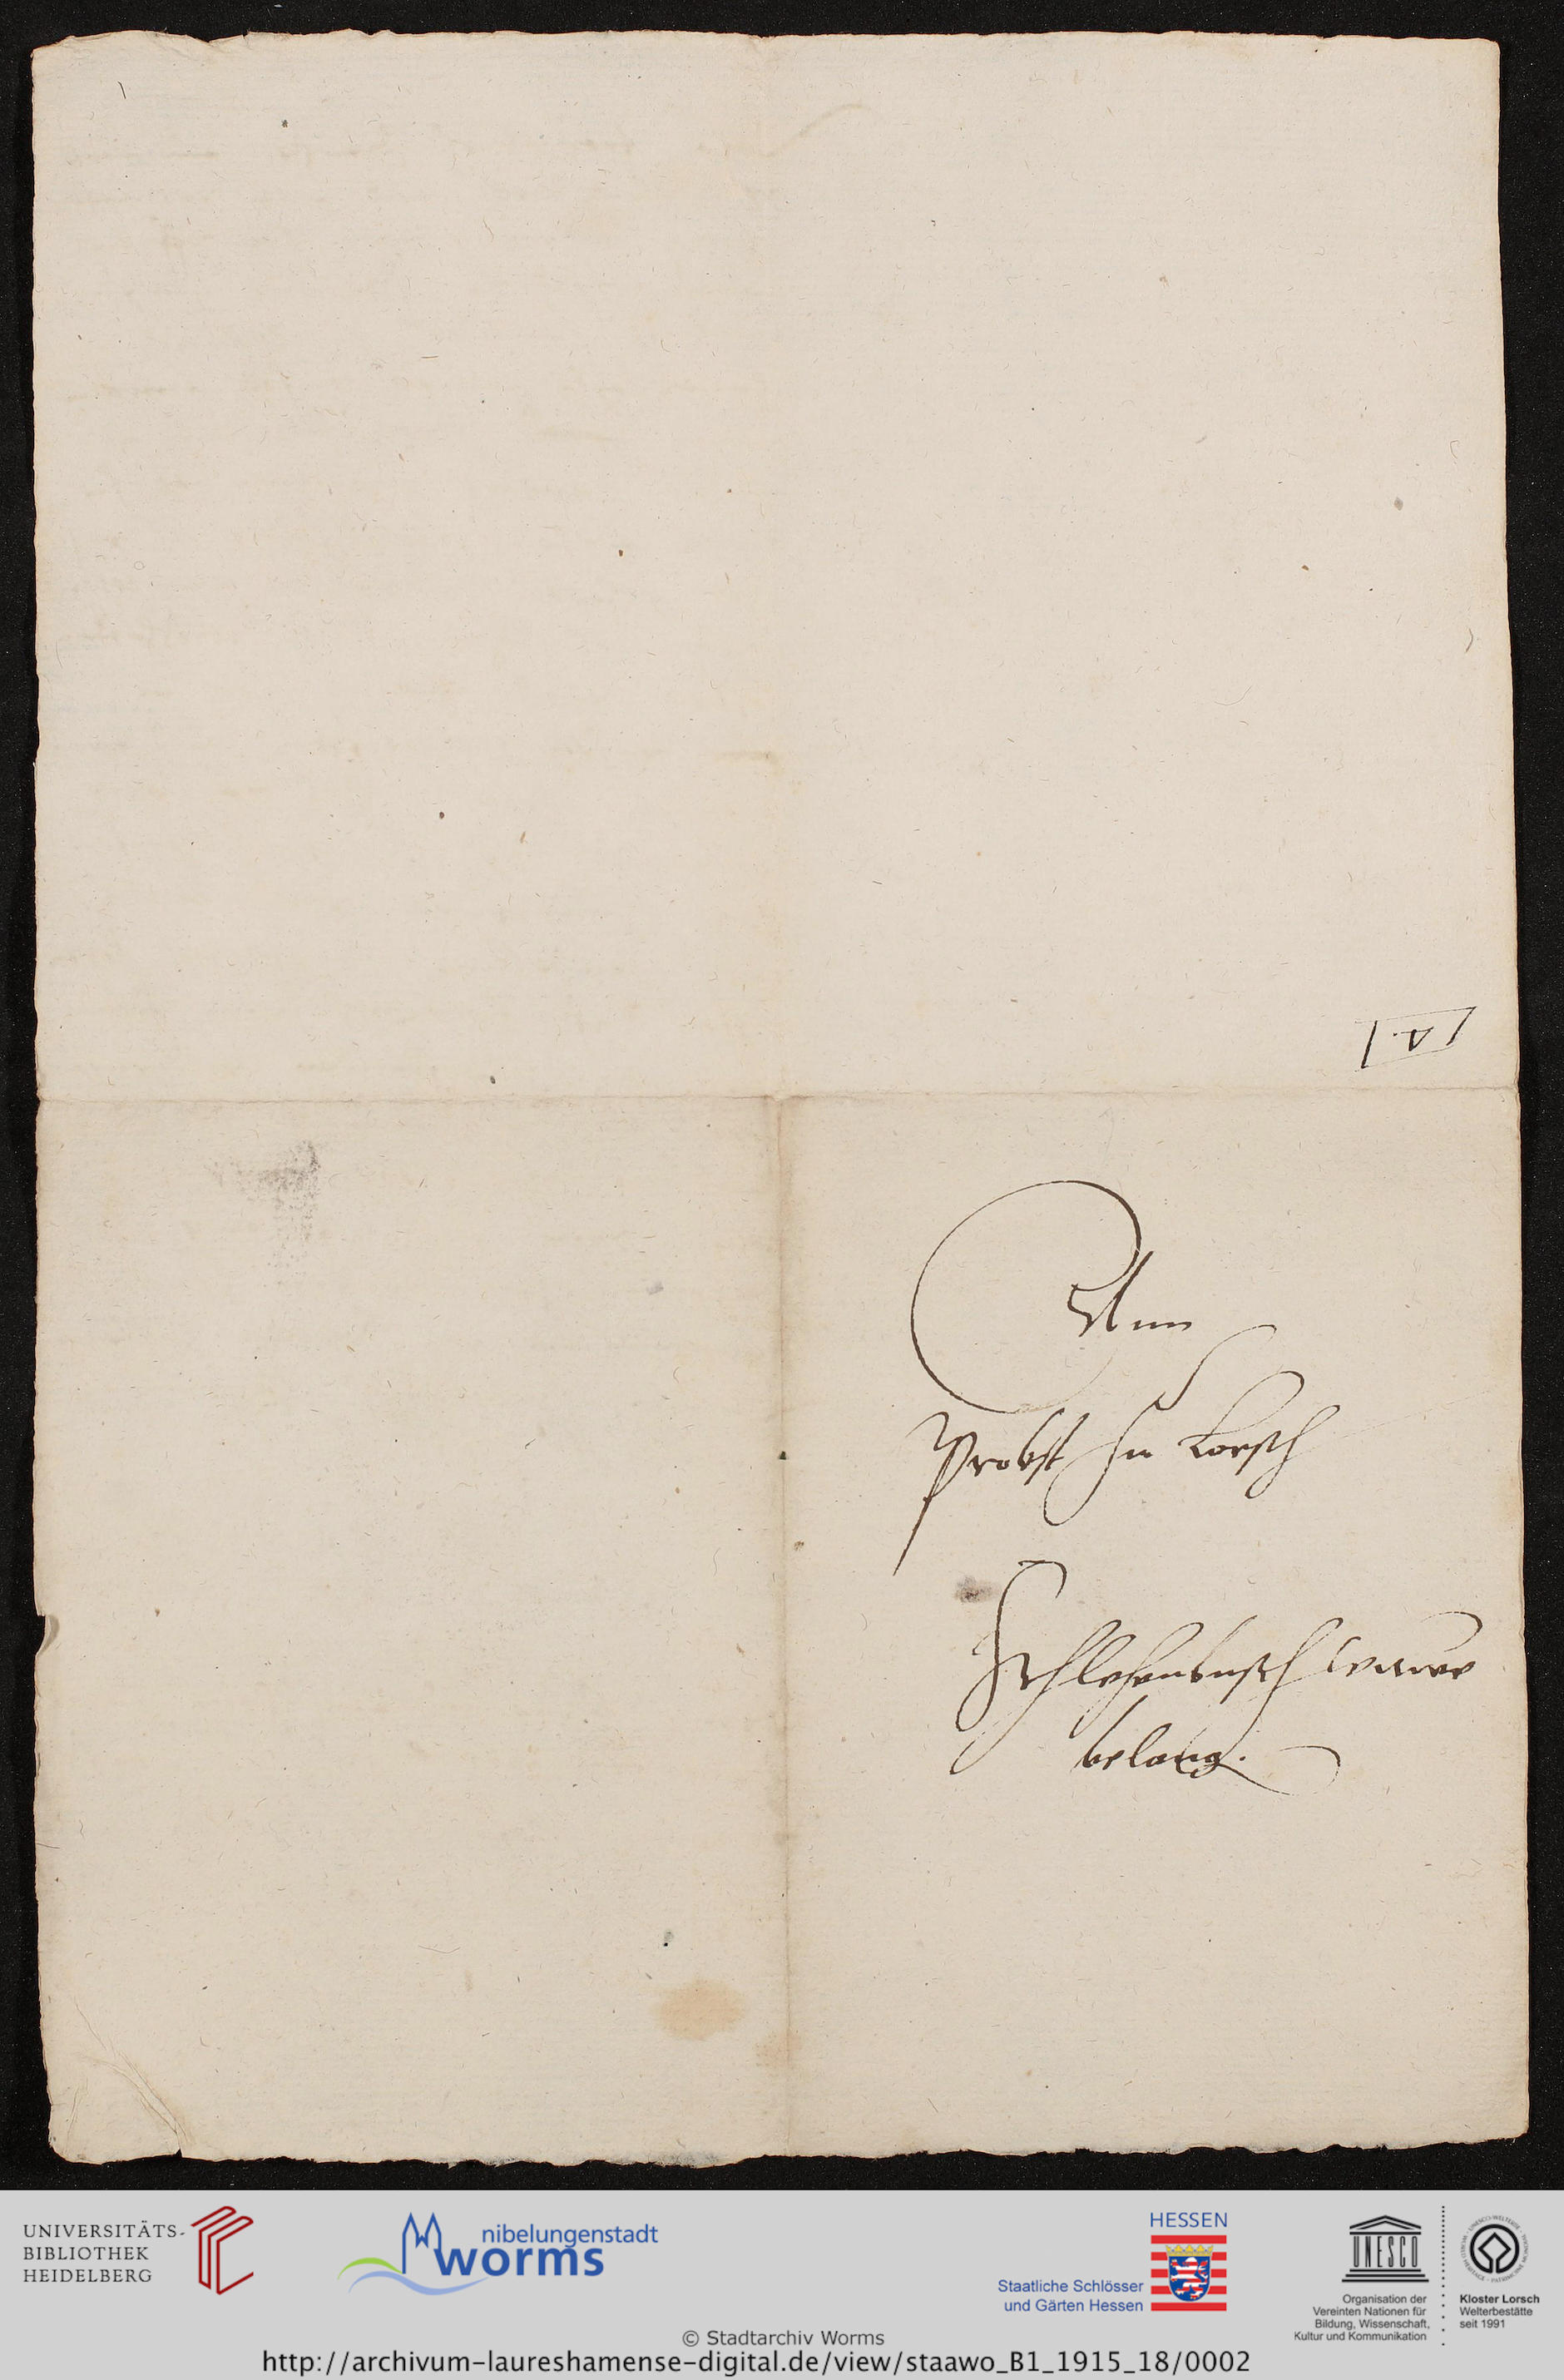 Ann
Probst zu Lorsch
belang.
UNIVERSITÄTS-
BIBLIOTHEK
HEIDELBERG
nibelungenstadt
worms
HESSEN
Staatliche Schlösser
und Gärten Hessen
UNESCO
Organisation der
Vereinten Nationen für
Bildung, Wissenschaft,
Kultur und Kommunikation
Kloster Lorsch
Welterbestätte
seit 1991
© Stadtarchiv Worms
http://archivum-laureshamense-digital.de/view/staawo_B1_1915_18/0002